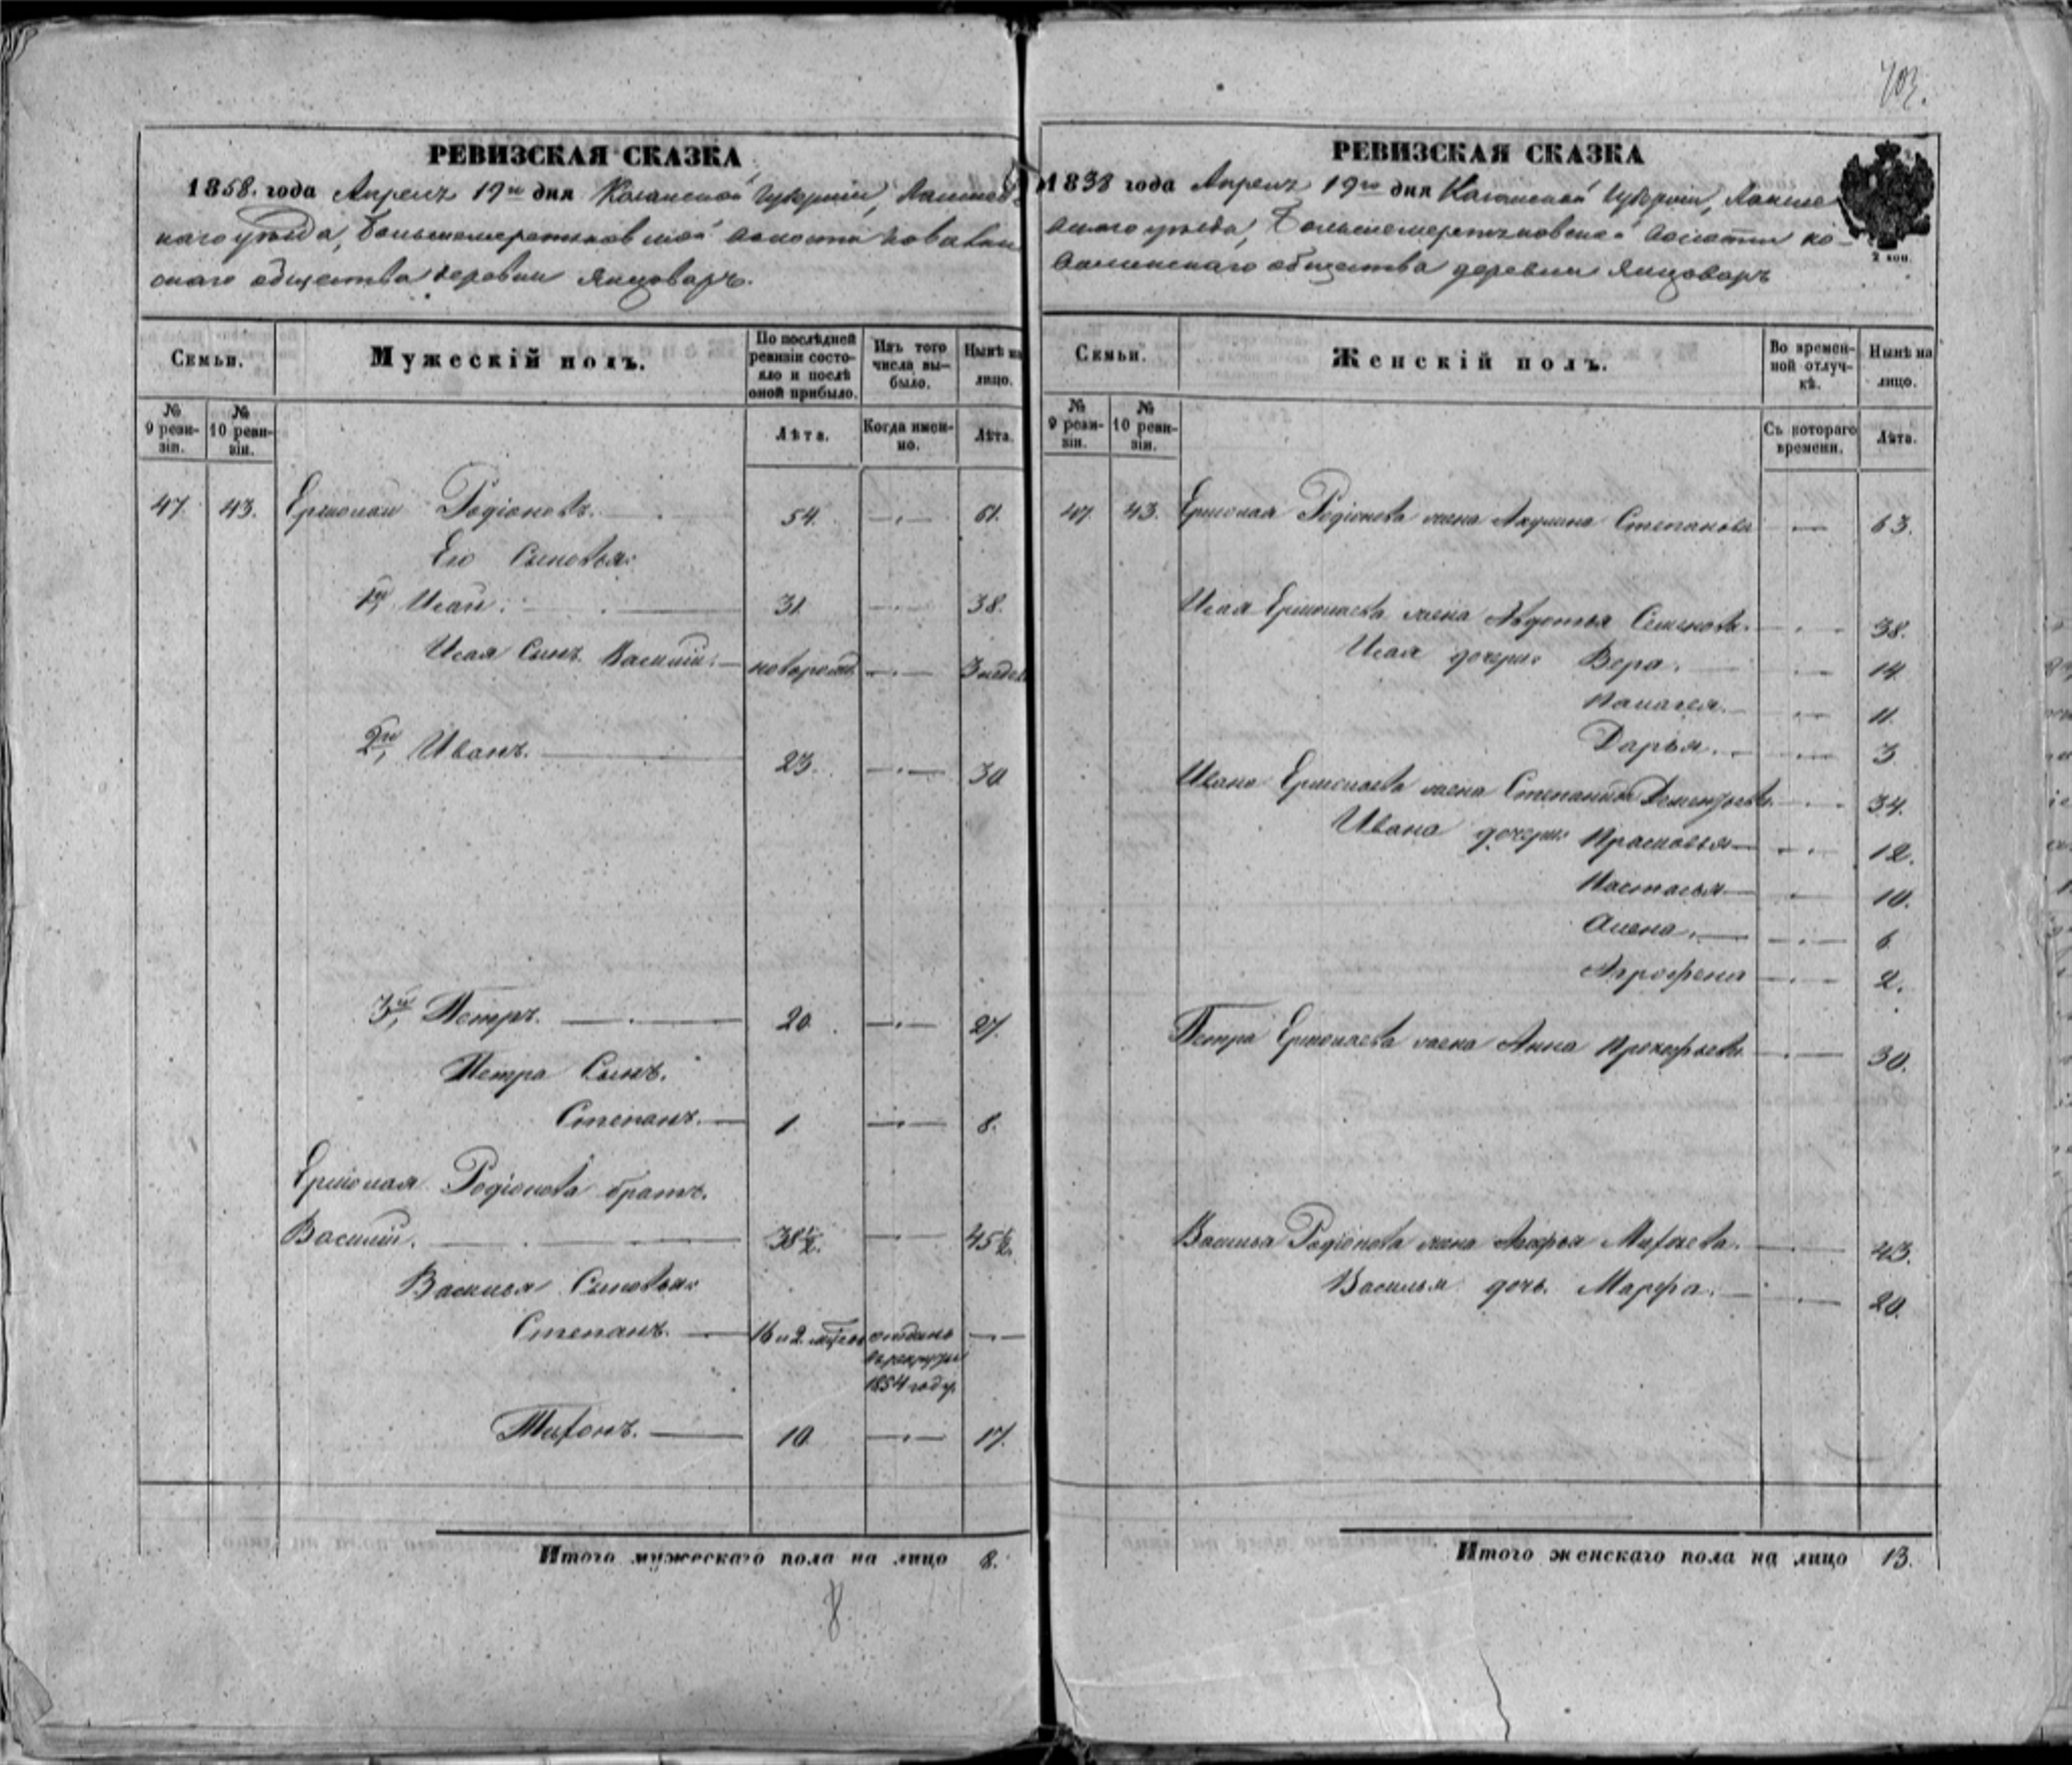 703.
РЕВИЗСКАЯ СКАЗКА
1858. года Апреля 19го дня Казанской Губернии, Лаишев
скаго уезда, волости
скаго общества деревни Янцоваръ.
Семьи.
Мужескій полъ.
По послѣдней ревизіи состояло и послѣ оной прибыло.
Изъ того числа выбыло.
Нынѣ на лицо.
№ 9 ревизіи.
№ 10 ревизіи.
Лѣта.
Когда именно.
Лѣта.
47. 43. Ермолай Родіоновъ. 54. 61.
Его Сыновья:
1й Исай. 31. 38.
Исая Сынъ Василій. новорожд. 3 недел
2й Иванъ. 23. 30
3й Петръ. 20 27.
Петра Сынъ.
Степанъ. 1 8.
Ермолая Родіонова братъ.
Василій. 38½. 45½.
Василья Сыновья:
Степанъ. 16 и 2 отданъ
в рекруты
1854 году.
Тихонъ. 10 17.
Итого мужескаго пола на лицо 8.
8
РЕВИЗСКАЯ СКАЗКА
1858 года Апреля 19го дня Казанской Губерніи, Лаише
вскаго уезда, волости
общества деревни Янцоваръ
2 коп.
Семьи.
Женскій полъ.
Во временной отлучкѣ.
Нынѣ на лицо.
№ 9 ревизіи.
№ 10 ревизіи.
Съ котораго времени.
Лѣта.
47 43. Ермолая Родіонова жена Акулина Степанова 63.
Исая Ермолаева жена Авдотья Семенова. 38.
Исая дочери: Вера. 14
Палагея. 11.
Дарья. 3
Ивана Ермолаева жена Степанида Дементьева. 34.
Ивана дочери: Прасковья 12.
Настасья 10.
Алена. 6
Аграфена 2.
Петра Ермолаева жена Анна Прокофьева 30.
Василья Родіонова жена Михеева. 43.
Василья дочь. Марфа. 20.
Итого женскаго пола на лицо 13.